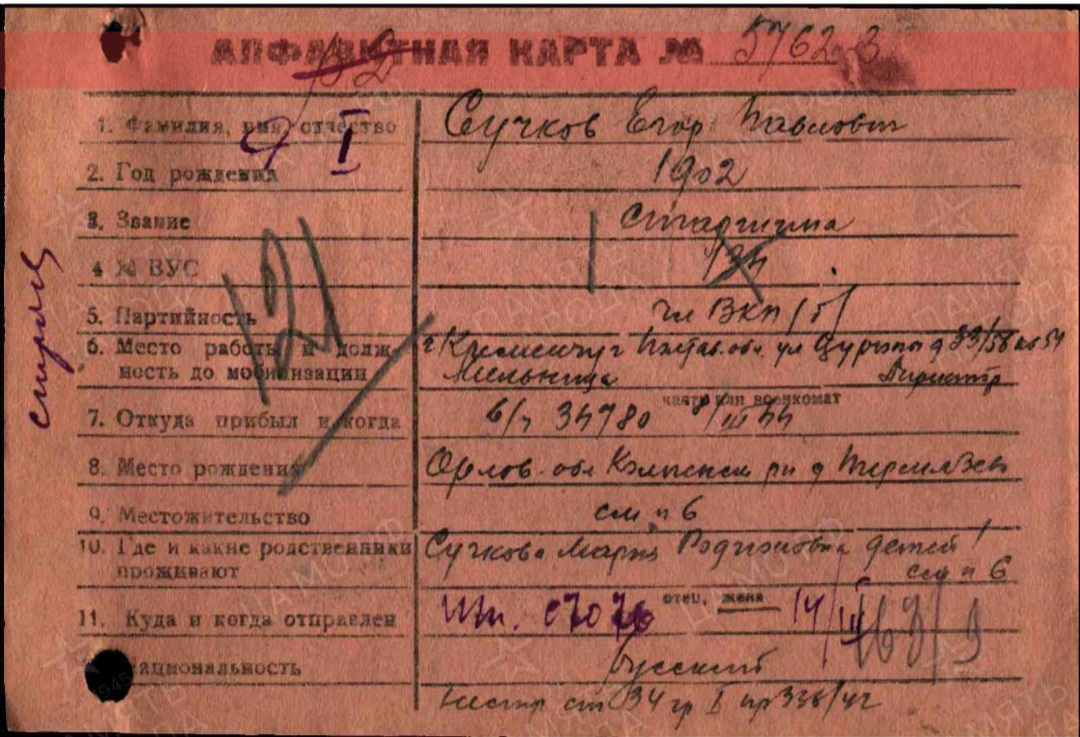 АЛФАВИТНАЯ КАРТА № 5762
1. Фамилия, имя, отчество Сучков Егор Павлович
I
2. Год рождения 1902
3. Звание старшина
4 № ВУС 134
121
5. Партийность чл ВКП/б/
6. Место работы и долж- г Кременчуг Полтав. обл. ул Цурюпы д 83/58 кв 54
ность до мобилизации Мельница Директор
часть или военкомат
7. Откуда прибыл и когда в/ч 34780 8/III 44
8. Место рождения Орлов. обл
9. Местожительство см п 6
10. Где и какие родственники Сучкова Мария Родионовна детей 1
проживают см п 6
отец, жена
11. Куда и когда отправлен 07076 14/III
Национальность Русский
ст 34 гр I пр 336/42
ПАМЯТЬ НАРОДА
ЦАМО РФ